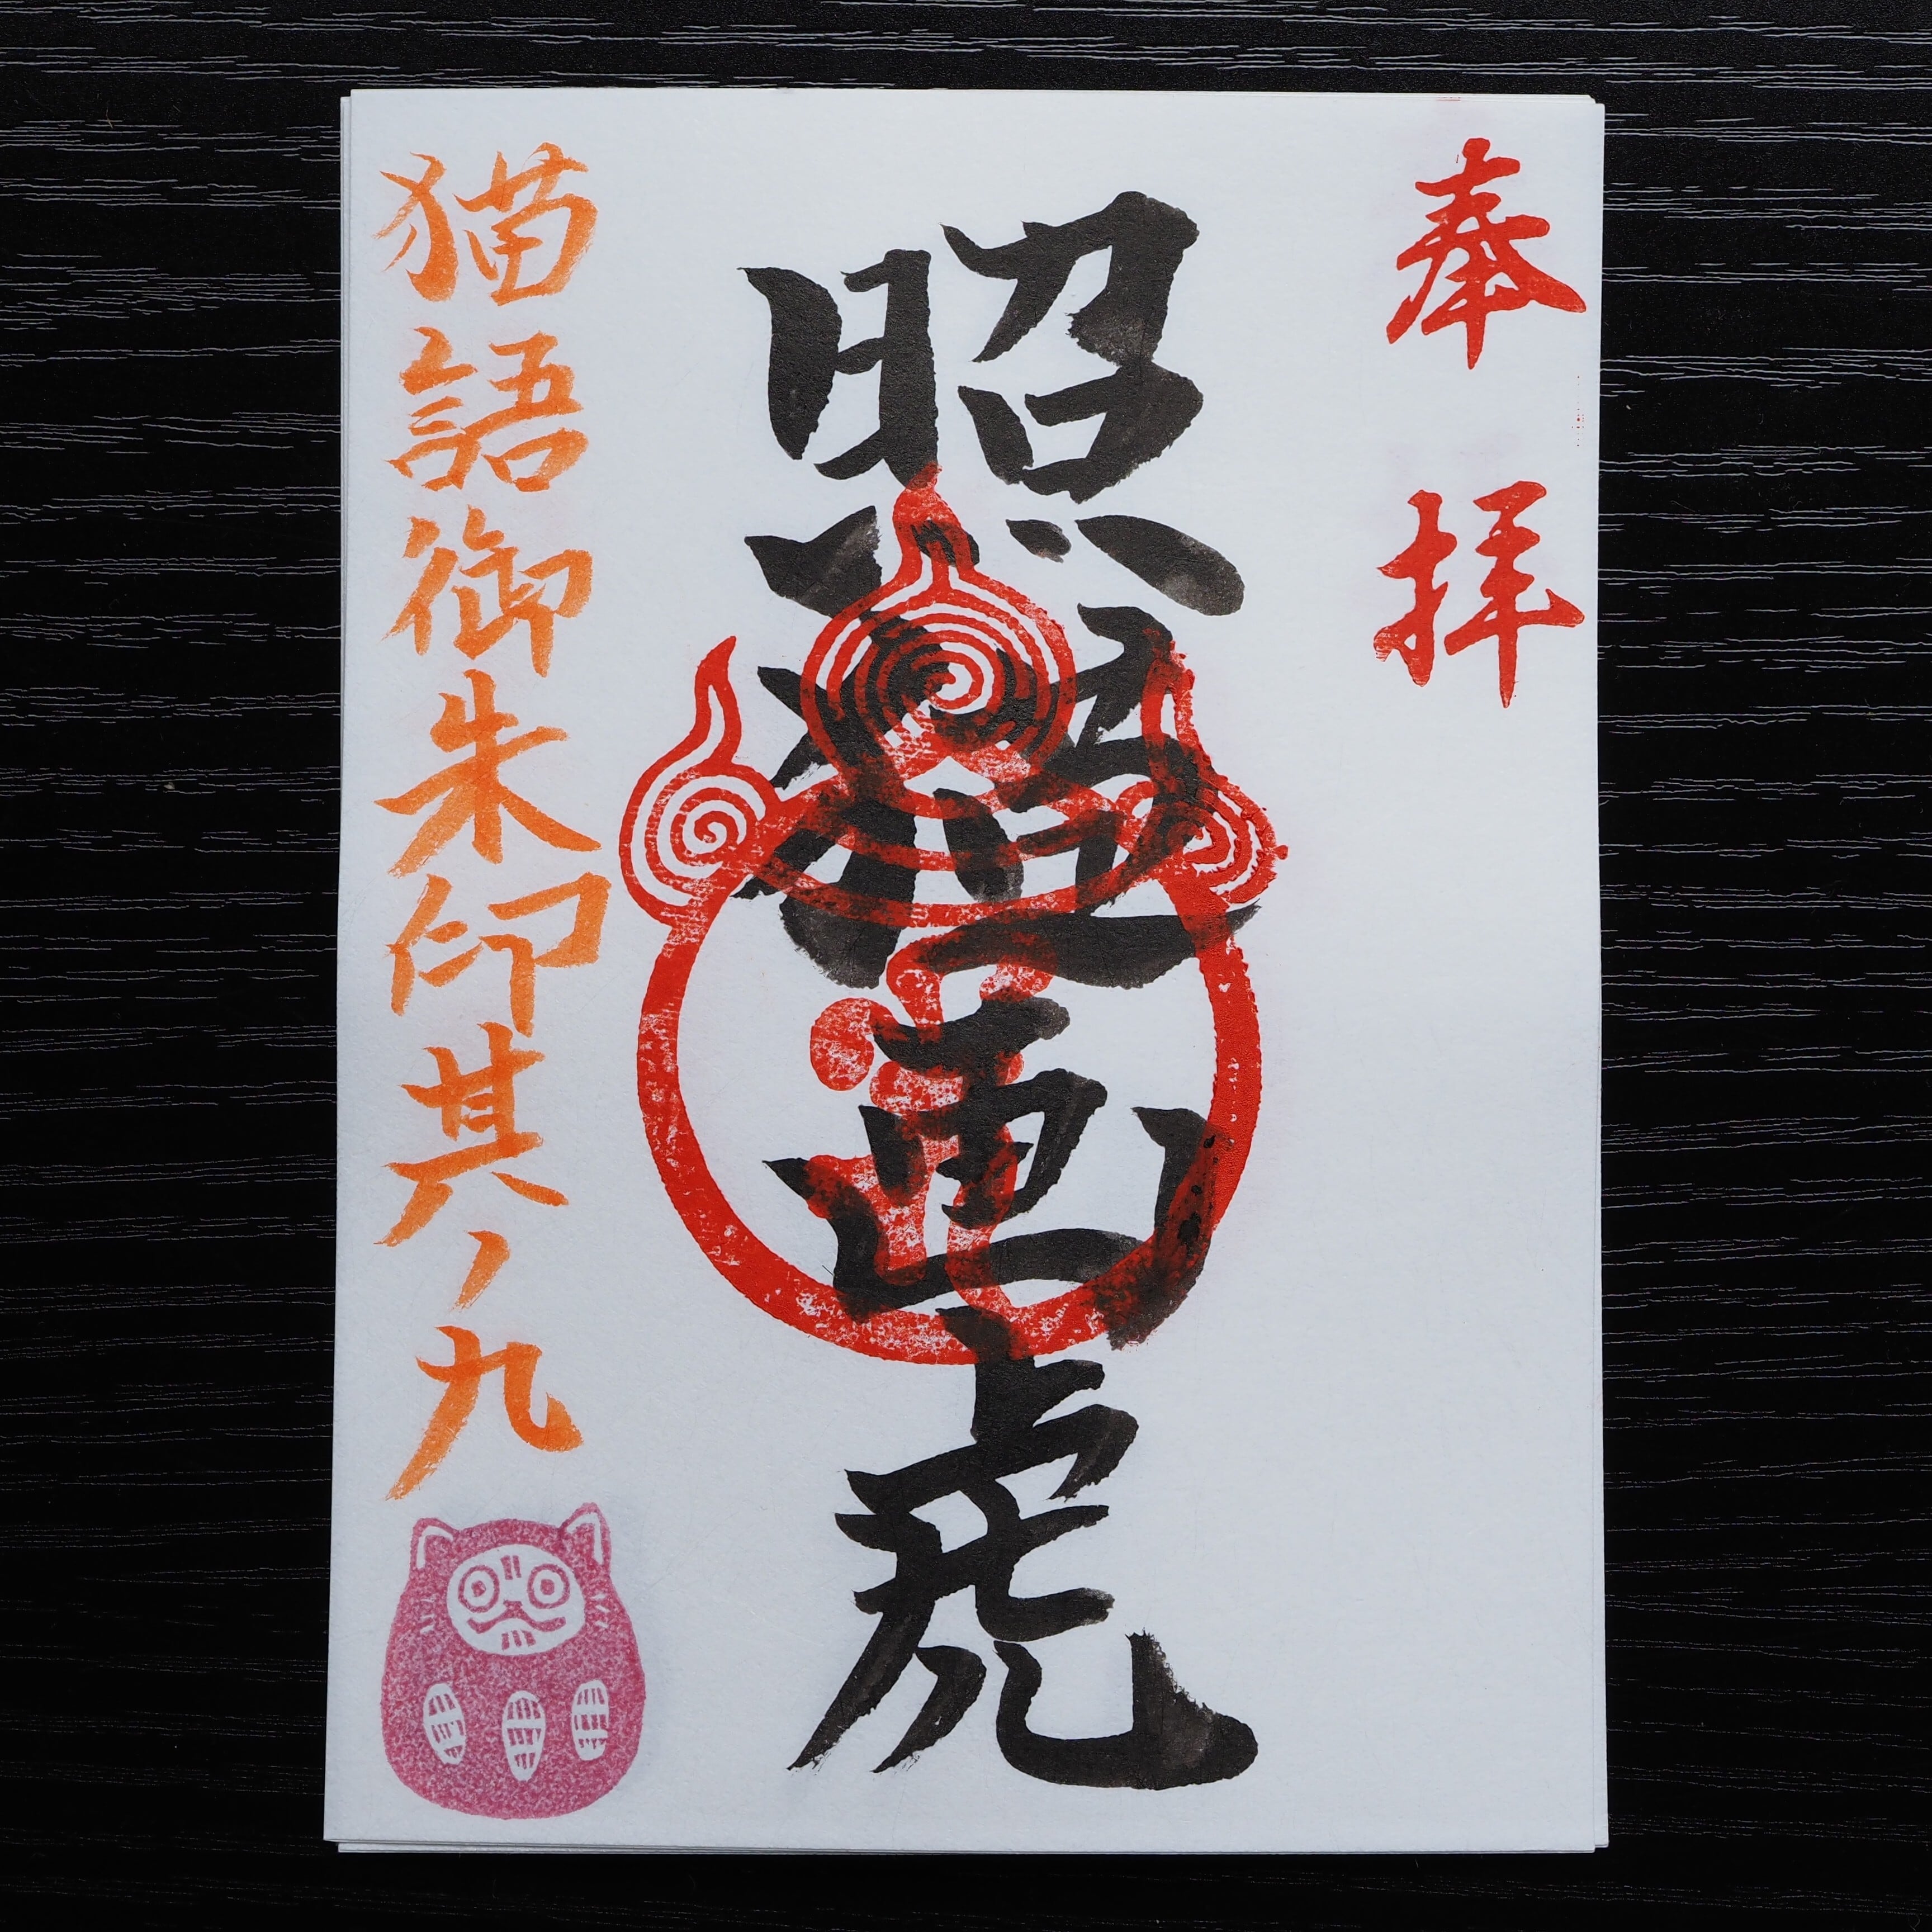 奉拝
照画虎
猫語御朱印其ノ九